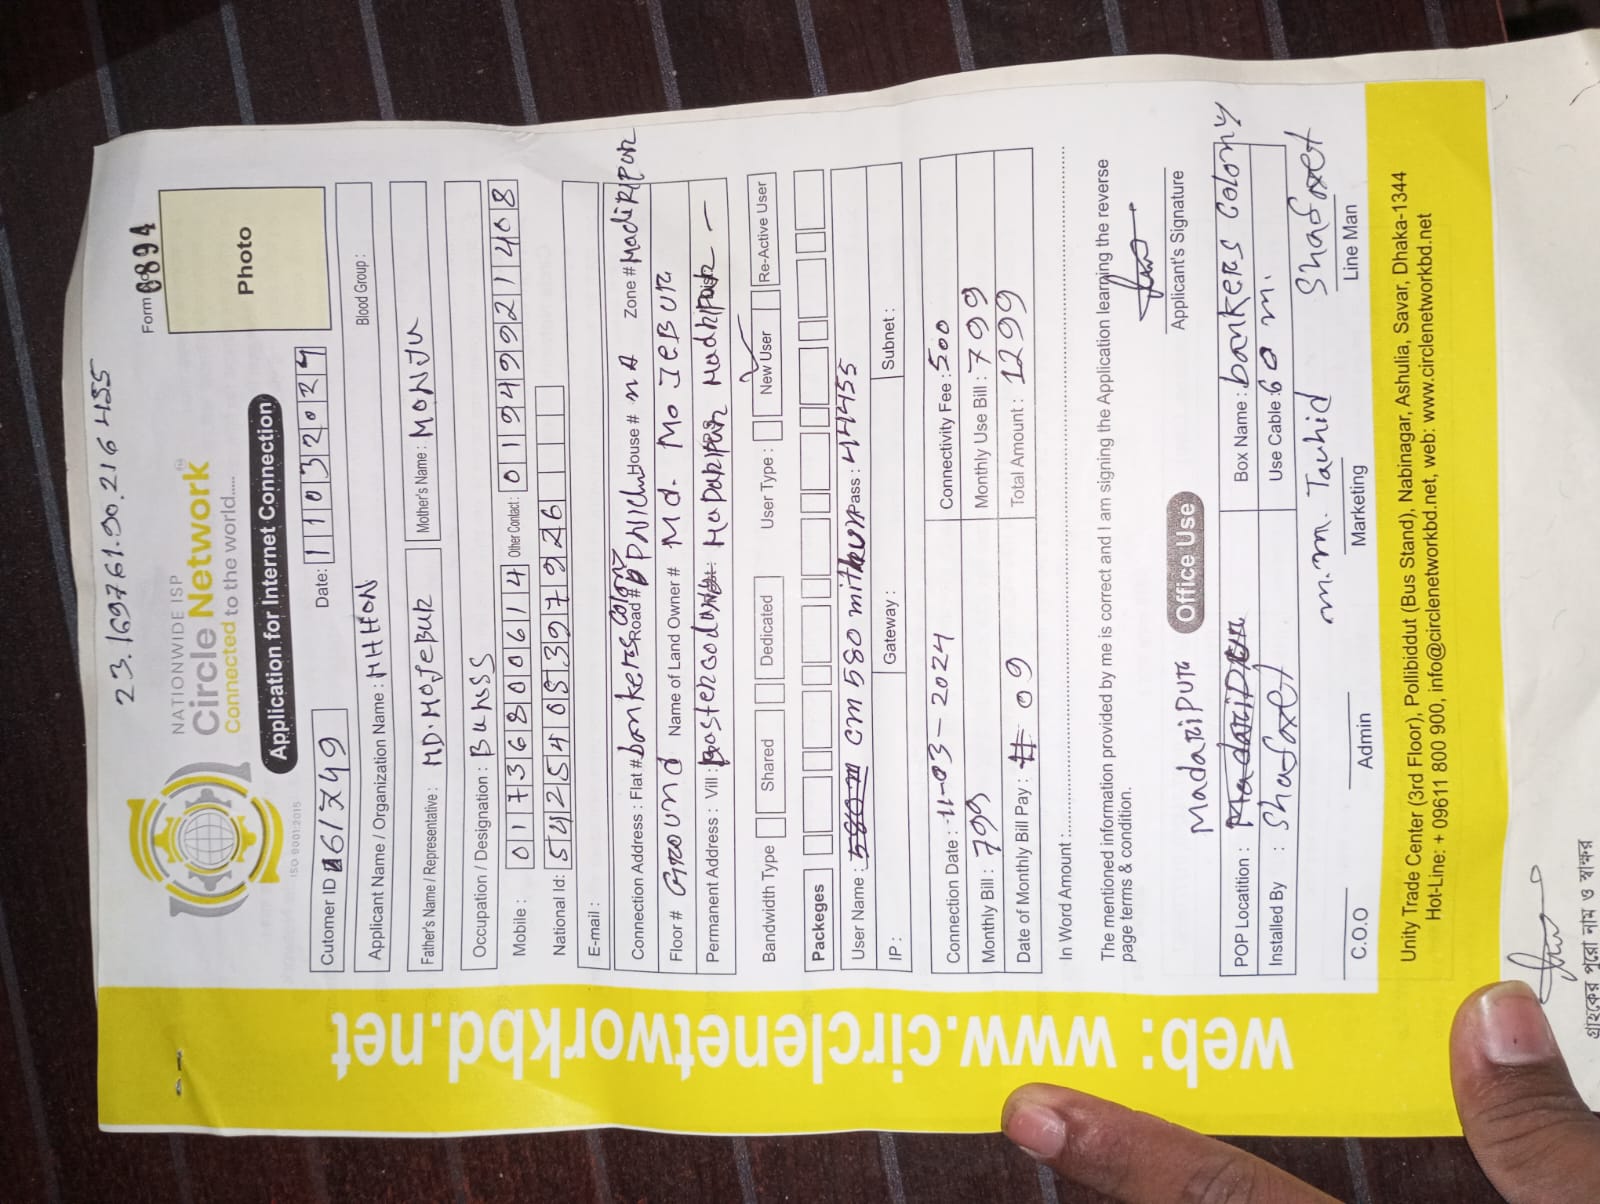 23.169761.90.216455
NATIONWIDE ISP
Circle Network
Connected to the world.....
ISO 9001:2015
Form 0894
Photo
Application for Internet Connection
Cutomer ID 61749 Date: 11032024
Applicant Name / Organization Name : MHHON Blood Group :
Father's Name / Representative : MD. MOJEBUR Mother's Name : MONJU
Occupation / Designation :
Mobile : 01736800614 Other Contact: 01949921408
National Id: 5425405397926
E-mail :
Connection Address : Flat # bankers colony Road # House # nA Zone # MadiRIPUR
Floor # Ground Name of Land Owner # Md. MoJeBUR
Permanent Address : Vill :
Bandwidth Type Shared Dedicated User Type : New User Re-Active User
Packeges
User Name : cm 580 Pass : 44455
IP : Gateway : Subnet :
Connection Date : 11-03-2024 Connectivity Fee : 500
Monthly Bill : 799 Monthly Use Bill : 799
Date of Monthly Bill Pay : 09 Total Amount : 1299
In Word Amount :
The mentioned information provided by me is correct and I am signing the Application learning the reverse
page terms & condition.
Applicant's Signature
Office Use
MadaRiPUR
POP Locatition : Box Name : bankers colony
Installed By : Shafaet Use Cable : 60 m.
m.m. Tauhid Shafaet
C.O.O Admin Marketing Line Man
Unity Trade Center (3rd Floor), Pollibiddut (Bus Stand), Nabinagar, Ashulia, Savar, Dhaka-1344
Hot-Line: + 09611 800 900, info@circlenetworkbd.net, web: www.circlenetworkbd.net
web: www.circlenetworkbd.net
গ্রাহকের পুরো নাম ও স্বাক্ষর